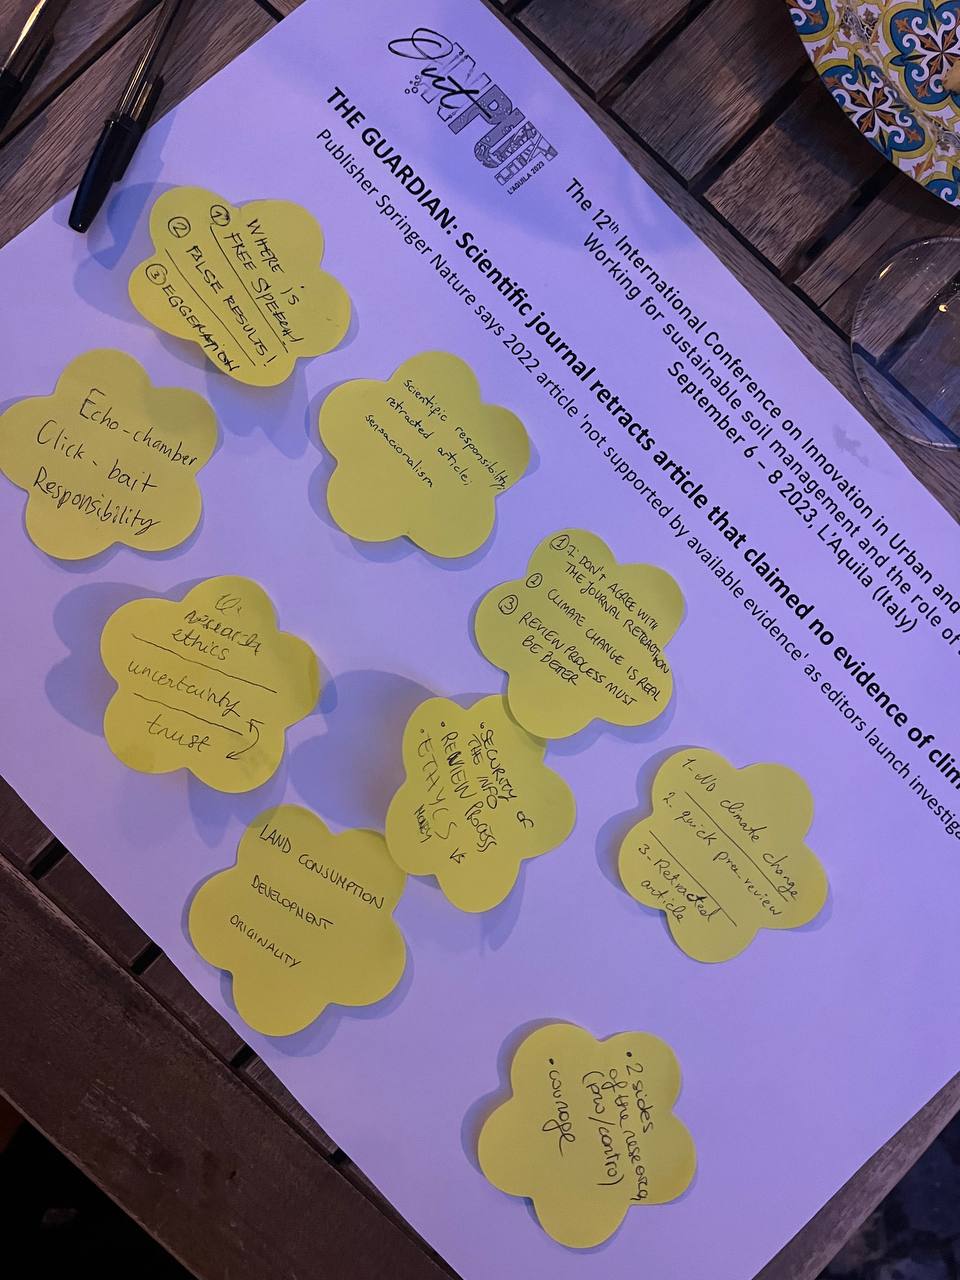 Out
INPUT
L'AQUILA 2023
The 12th International Conference on Innovation in Urban and
Working for sustainable soil management and the role of
September 6 – 8 2023, L'Aquila (Italy)
THE GUARDIAN: Scientific journal retracts article that claimed no evidence of clim
Publisher Springer Nature says 2022 article 'not supported by available evidence' as editors launch investiga
WHERE IS
① FREE SPEECH!
② FALSE RESULTS!
③ EGGERATION!
Echo-chamber
Click-bait
Responsibility
Scientific responsibility,
retracted article,
sensacionalism
① I DON'T AGREE WITH
THE JOURNAL RETRACTION
② CLIMATE CHANGE IS REAL
③ REVIEW PROCESS MUST
BE BETTER
research
ethics
uncertainty
trust
• SECURITY OF
THE INFO
• REVIEW PROCESS
• ETHYCS VS
MONEY
1- No climate change
2. quick pree review
3- Retracted
article
LAND CONSUMPTION
DEVELOPMENT
ORIGINALITY
• 2 sides
of the research
(pro/contro)
• courage